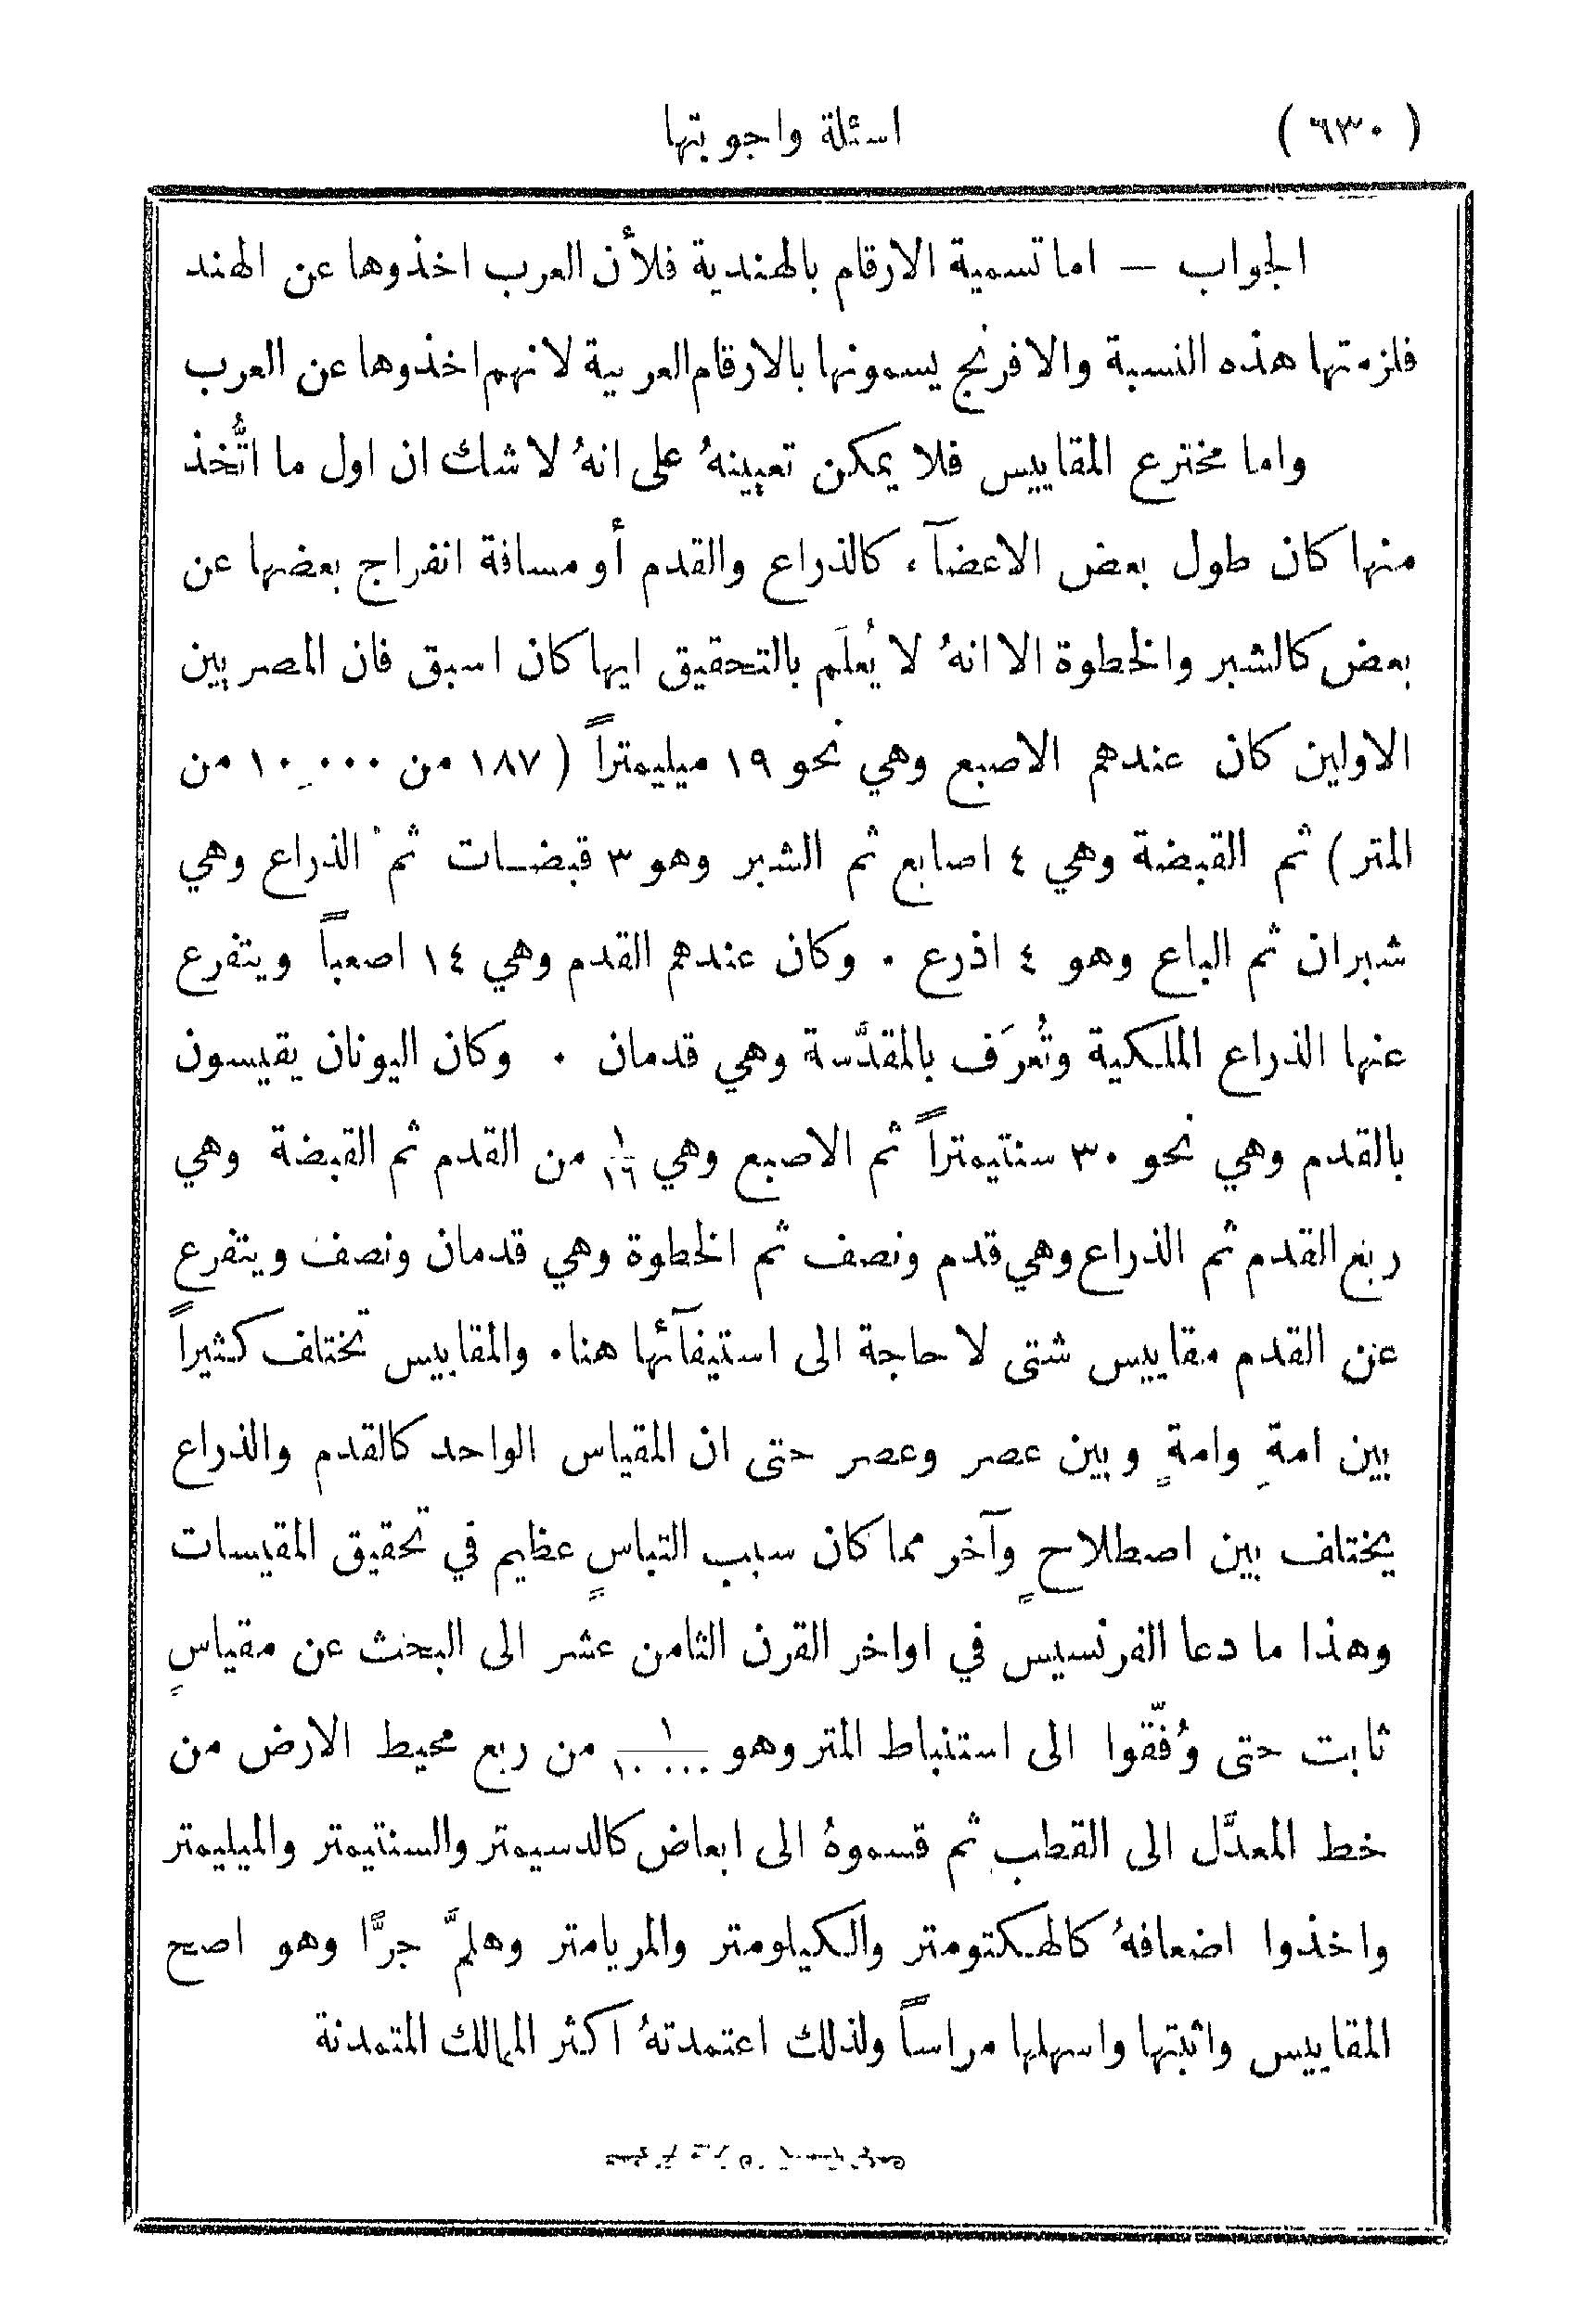 ( ٦٣٠ ) اسئلة واجوبتها
الجواب – اما تسمية الارقام بالهندية فلأن العرب اخذوها عن الهند
فلزمتها هذه النسبة والافرنج يسمونها بالارقام العربية لانهم اخذوها عن العرب
واما مخترع المقاييس فلا يمكن تعيينهُ على انهُ لا شك ان اول ما اتُّخذ
منها كان طول بعض الاعضآء كالذراع والقدم أو مسافة انفراج بعضها عن
بعض كالشبر والخطوة الا انهُ لا يُعلَم بالتحقيق ايها كان اسبق فان المصريين
الاولين كان عندهم الاصبع وهي نحو ١٩ ميليمتراً ( ١٨٧ من ١٠٠٠٠ من
المتر ) ثم القبضة وهي ٤ اصابع ثم الشبر وهو ٣ قبضات ثم الذراع وهي
شبران ثم الباع وهو ٤ اذرع ٠ وكان عندهم القدم وهي ١٤ اصعباً ويتفرع
عنها الذراع الملكية وتُعرَف بالمقدَّسة وهي قدمان ٠ وكان اليونان يقيسون
بالقدم وهي نحو ٣٠ سنتيمتراً ثم الاصبع وهي ١/١٦ من القدم ثم القبضة وهي
ربع القدم ثم الذراع وهي قدم ونصف ثم الخطوة وهي قدمان ونصف ويتفرع
عن القدم مقاييس شتى لا حاجة الى استيفآئها هنا ٠ والمقاييس تختلف كثيراً
بين امةِ وامةٍ وبين عصر وعصر حتى ان المقياس الواحد كالقدم والذراع
يختلف بين اصطلاحٍ وآخر مما كان سبب التباسٍ عظيم في تحقيق المقيسات
وهذا ما دعا الفرنسيس في اواخر القرن الثامن عشر الى البحث عن مقياسٍ
ثابت حتى وُفّقوا الى استنباط المتر وهو من ربع محيط الارض من
خط المعدَّل الى القطب ثم قسموهُ الى ابعاض كالدسيمتر والسنتيمتر والميليمتر
واخذوا اضعافهُ كالهكتومتر والكيلومتر والمريامتر وهلمَّ جرًّا وهو اصح
المقاييس واثبتها واسهلها مراساً ولذلك اعتمدتهُ اكثر الممالك المتمدنة